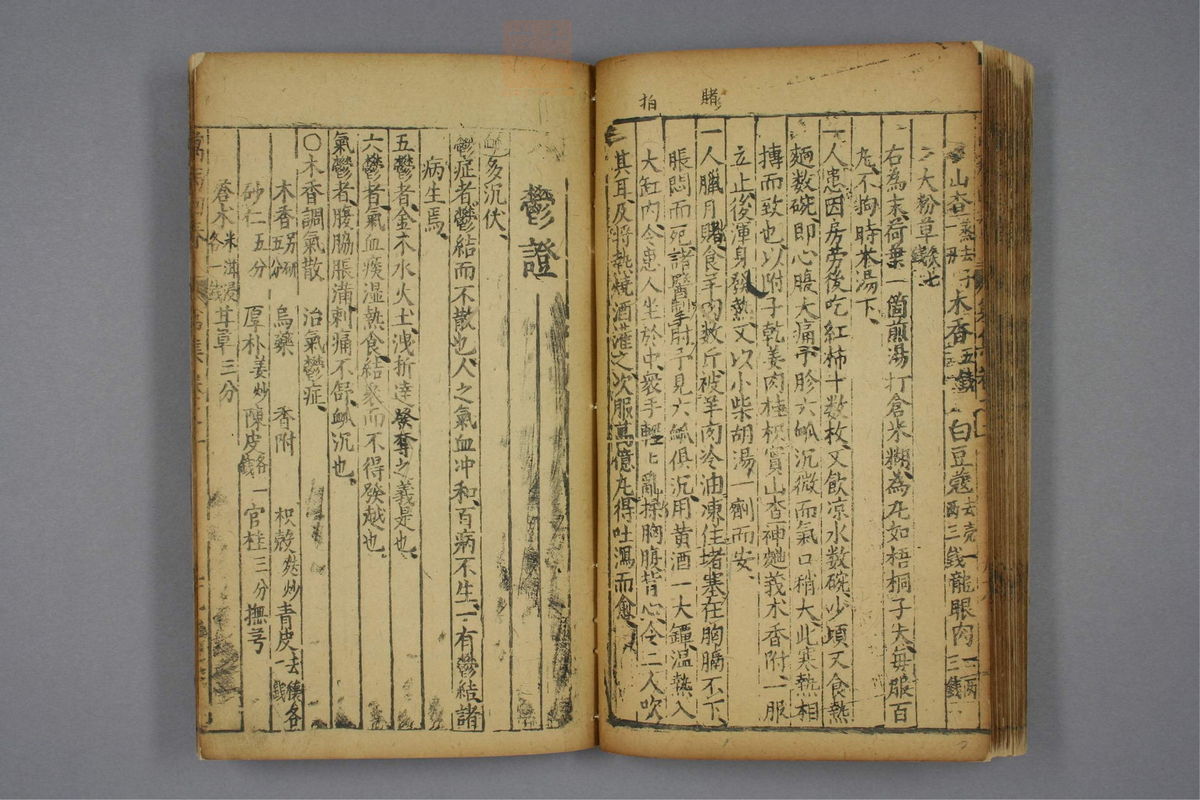 賭
拍
山查蒸去子一两木香五錢白豆蔻去壳一两三錢龍眼肉一两三錢
大粉草
右為末荷葉一箇煎湯打倉米糊為丸如梧桐子大每服百
丸不拘時本湯下
一人患因房劳後吃紅柿十数枚又飲凉水数碗少頃又食熱
麵数碗即心腹大痛予胗六脉沉微而氣口稍大此寒熱相
摶而致也以附子乾姜肉桂枳實山查神麯莪木香附一服
立止後渾身發熱又以小柴胡湯一劑而安
一人臘月賭食羊肉数斤被羊肉冷油凍住堵塞在胸膈不下
脹悶而死諸醫掣肘予見六脉俱沉用黄酒一大鐘温熱入
大缸内令患人坐於中衆手輕ヒ乱揉胸腹背心令二人吹
其耳及将熱燒酒灌之次服萬億丸得吐瀉而愈
鬱證
脉多沉伏
鬱症者鬱結而不散也人之氣血冲和百病不生一有鬱結諸
病生焉
五鬱者金木水火土洩折達發奪之義是也
六鬱者氣血痰湿熱食結聚而不得發越也
氣鬱者腹脇脹满刺痛不舒脉沉也
〇木香調氣散 治氣鬱症
木香另研五分 烏藥 香附 枳殼炒 青皮去穰各一錢
砂仁五分 厚朴姜炒 陳皮各一錢 官桂三分 撫芎
蒼木米泔浸各一錢 甘草三分